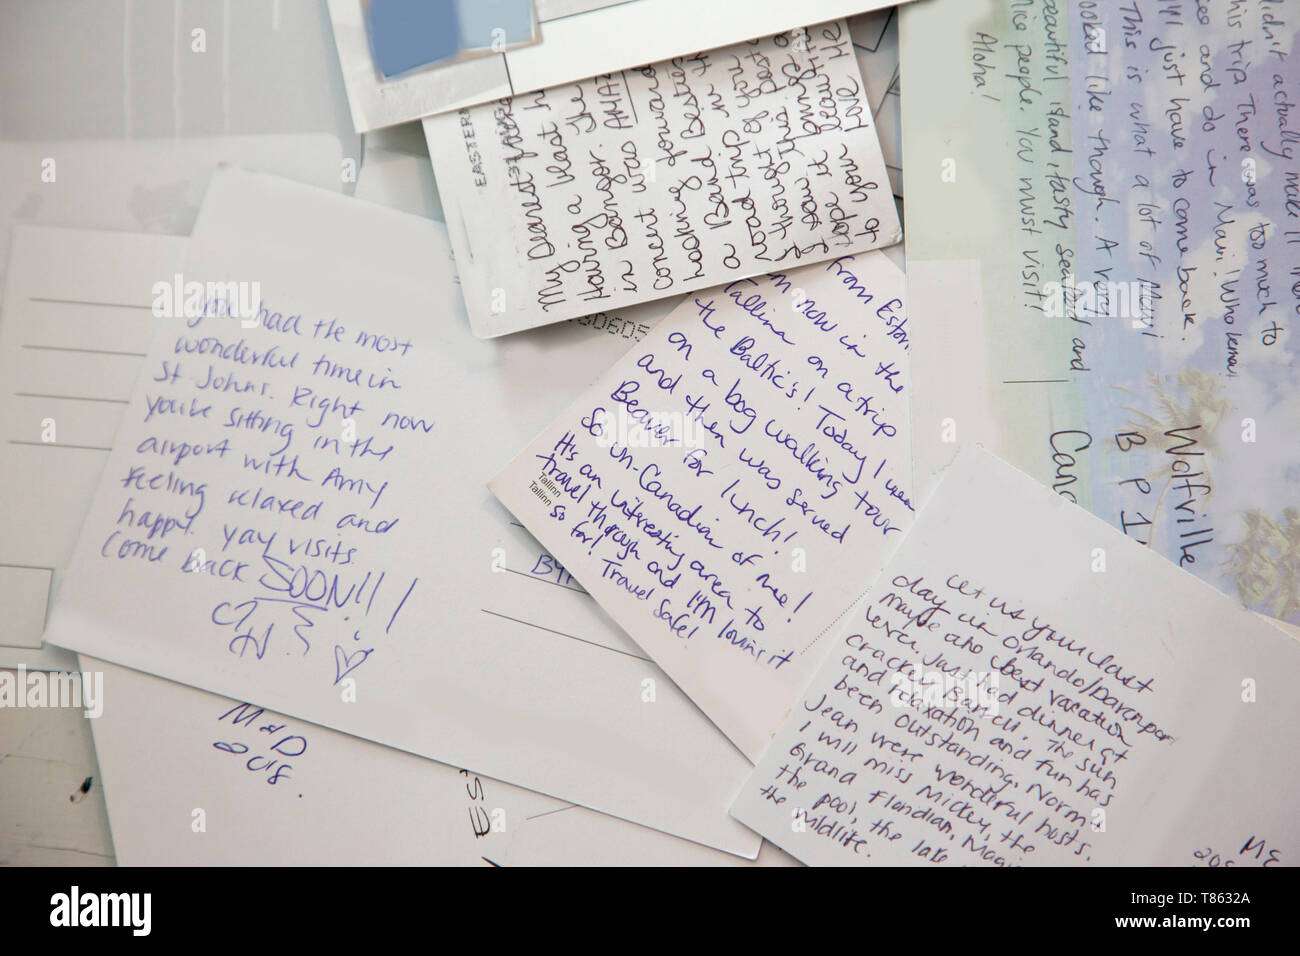 you had the most
wonderful time in
St Johns. Right now
you're sitting in the
airport with Amy
feeling relaxed and
happy. yay visits.
Come back SOON!!!
M & D
2018.
EASTERN
My Dearest
Having a least
in Bangor. The
concert was AMA
looking forward
a Band Bistro
road trip in th
I thought of you
you. This post
hope it brings
to you beaut
love He
From Eston
I'm now in the
Tallinn on a trip
the Baltic's! Today I went
on a bog walking tour
and then was served
Beaver for lunch!
So un-Canadian of me!
It's an interesting area to
travel through and I'm loving it
so far! Travel Safe!
Tallinn
Tallinn
Didn't actually make it
this trip. There was too much to
see and do in Maui! Who knew!
I'll just have to come back.
This is what a lot of Maui
looked like though. A very
beautiful island, tasty seafood and
nice people. You must visit!
Aloha!
Wolfville
B P 1
Can
Let us your last
day in Orlando/Davenport
maybe and best vacation
ever. Just had dinner at
Cracker Barrel. The sun
and relaxation and fun has
been outstanding. Norm &
Jean were wonderful hosts.
I will miss Mickey, the
Grand Floridian, Magic
the pool, the lake
the wildlife.
ME
alamy
Image ID: T8632A
www.alamy.com